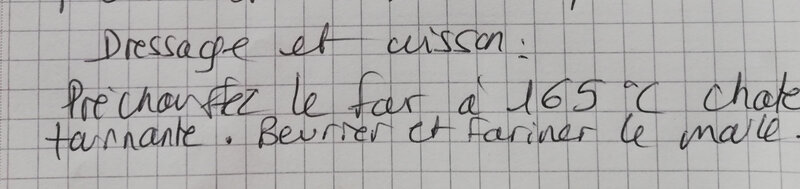 Dressage et cuisson :
Préchauffez le four à 165 °C chale
tournante. Beurrer et fariner le moule.